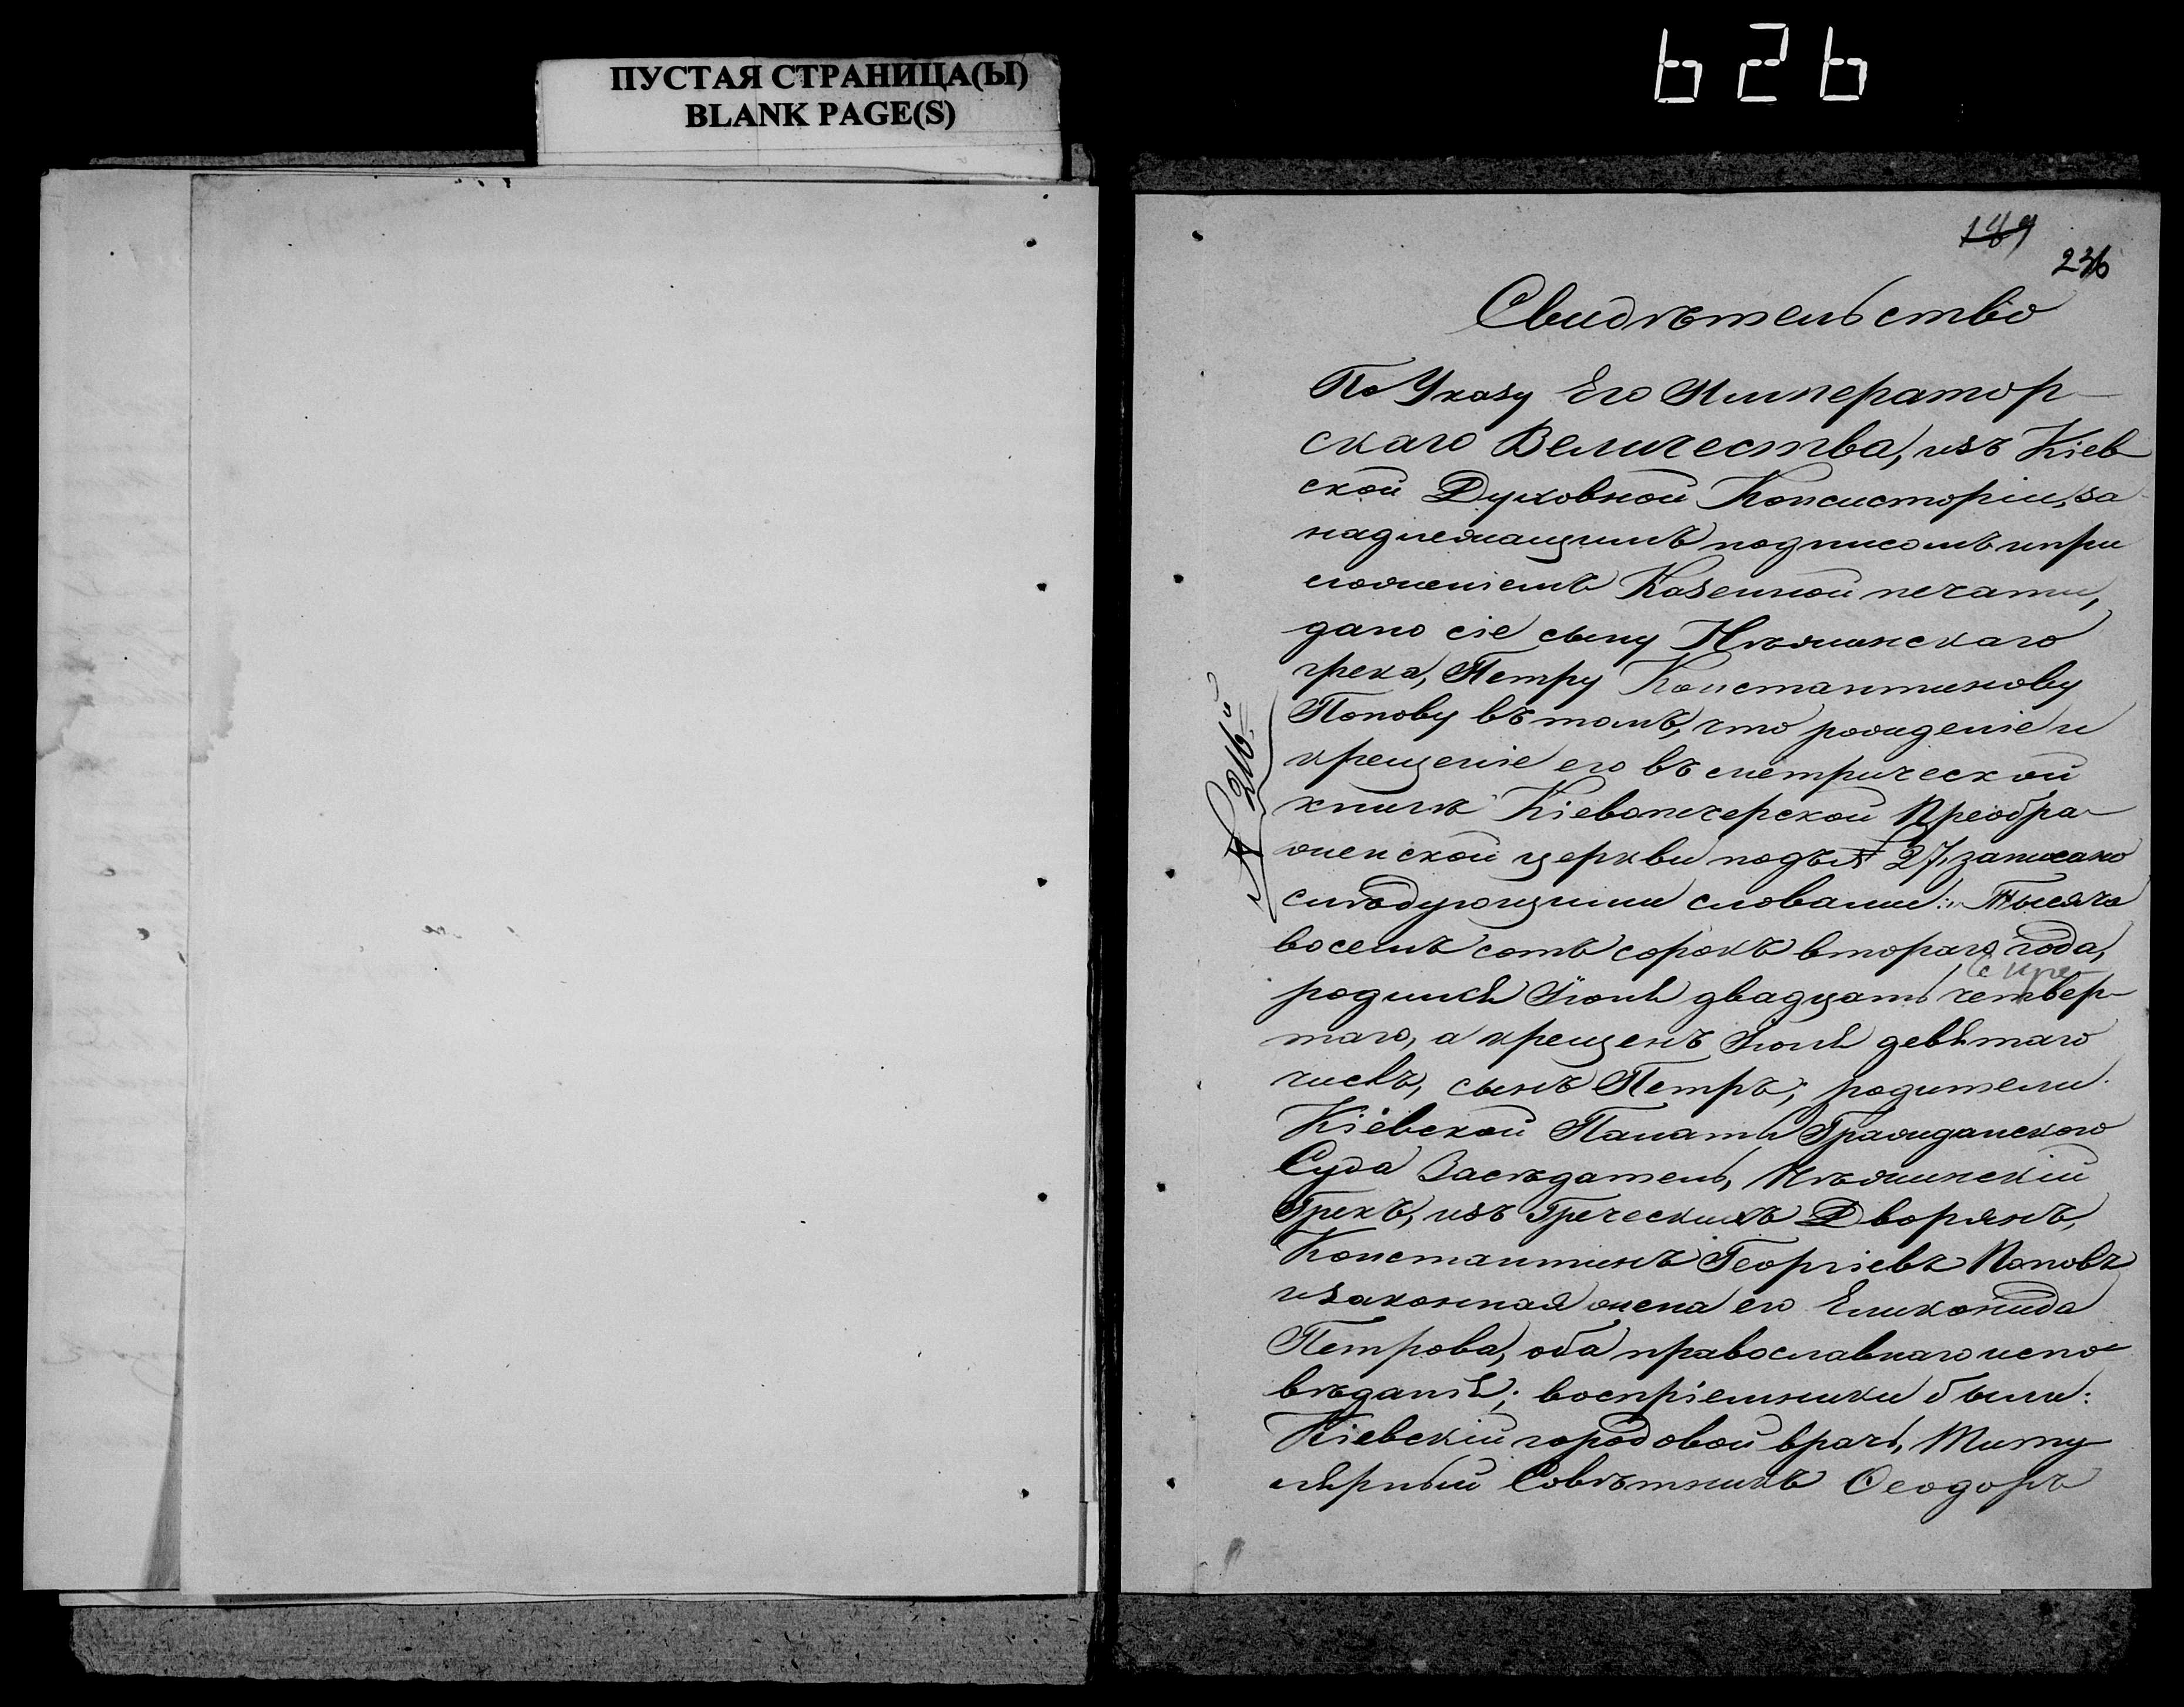 ПУСТАЯ СТРАНИЦА(Ы)
BLANK PAGE(S)
626
189
236
Свидѣтельство
По Указу Его Император-
скаго Величества, изъ Кіев-
ской Духовной Консисторіи, за
надлежащимъ подписомъ и при
ложеніемъ Казенной печати,
дано сіе сыну Нѣжинскаго
грека, Петру Константинову
Попову въ томъ, что рожденіе и
крещеніе его въ метрической
книгѣ Кіевопечерской Преобра-
женской церкви подъ № 27, записано
слѣдующими словами: „Тысяча
восемъ сотъ сорокъ втораго года,
родился Іюня двадцать четвер-
таго, а крещенъ Іюля девятаго
числъ, сынъ Петръ; родители:
Кіевской Палаты Гражданского
Суда Засѣдатель, Нѣжинскій
Грекъ, изъ Греческихъ Дворянъ,
Константинъ Георгіевъ Поповъ
и законная жена его Еликонида
Петрова, оба православнаго испо-
вѣданія; воспріемники были:
Кіевскій городовой врачъ, Титу-
лярный Совѣтникъ Ѳеодоръ
№ 216й